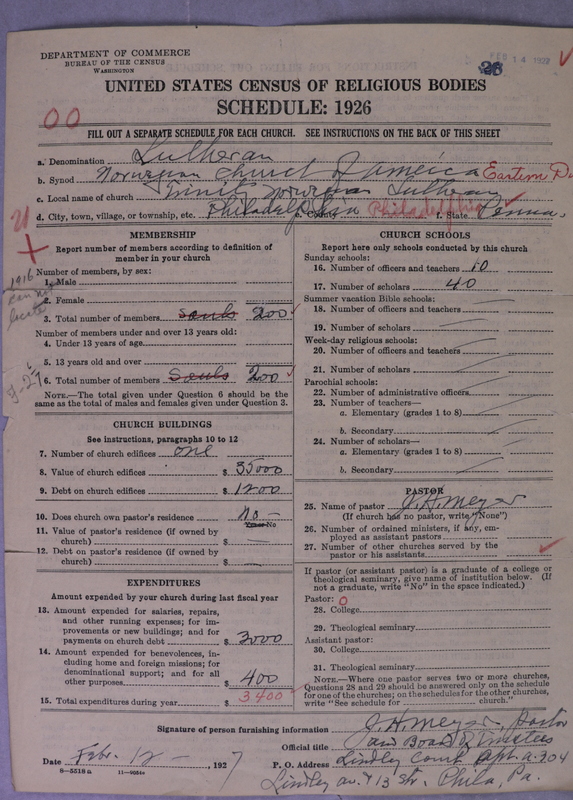 DEPARTMENT OF COMMERCE
BUREAU OF THE CENSUS
WASHINGTON
FEB 14 1927
26
UNITED STATES CENSUS OF RELIGIOUS BODIES
SCHEDULE: 1926
00
FILL OUT A SEPARATE SCHEDULE FOR EACH CHURCH. SEE INSTRUCTIONS ON THE BACK OF THIS SHEET
a. Denomination Lutheran
b. Synod Norwegian Church of America Eastern
c. Local name of church Trinity Norwegian Lutheran
d. City, town, village, or township, etc. Philadelphia e. County Philadelphia f. State Penna.
MEMBERSHIP
Report number of members according to definition of
member in your church
1916
can not
locate
Number of members, by sex:
1. Male
2. Female
3. Total number of members Souls 200
Number of members under and over 13 years old:
4. Under 13 years of age
5. 13 years old and over
6. Total number of members Souls 200
NOTE.—The total given under Question 6 should be the
same as the total of males and females given under Question 3.
CHURCH BUILDINGS
See instructions, paragraphs 10 to 12
7. Number of church edifices one
8. Value of church edifices $ 35000
9. Debt on church edifices $ 1200
10. Does church own pastor's residence no
Yes or No
11. Value of pastor's residence (if owned by
church) $
12. Debt on pastor's residence (if owned by
church) $
EXPENDITURES
Amount expended by your church during last fiscal year
13. Amount expended for salaries, repairs,
and other running expenses; for im-
provements or new buildings; and for
payments on church debt $ 3000
14. Amount expended for benevolences, in-
cluding home and foreign missions; for
denominational support; and for all
other purposes $ 400
15. Total expenditures during year $ 3400
CHURCH SCHOOLS
Report here only schools conducted by this church
Sunday schools:
16. Number of officers and teachers 10
17. Number of scholars 40
Summer vacation Bible schools:
18. Number of officers and teachers
19. Number of scholars
Week-day religious schools:
20. Number of officers and teachers
21. Number of scholars
Parochial schools:
22. Number of administrative officers
23. Number of teachers—
a. Elementary (grades 1 to 8)
b. Secondary
24. Number of scholars—
a. Elementary (grades 1 to 8)
b. Secondary
PASTOR
25. Name of pastor J. H. Meyer
(If church has no pastor, write "None")
26. Number of ordained ministers, if any, em-
ployed as assistant pastors
27. Number of other churches served by the
pastor or his assistants
If pastor (or assistant pastor) is a graduate of a college or
theological seminary, give name of institution below. (If
not a graduate, write "No" in the space indicated.)
Pastor: 0
28. College
29. Theological seminary
Assistant pastor:
30. College
31. Theological seminary
NOTE.—Where one pastor serves two or more churches,
Questions 28 and 29 should be answered only on the schedule
for one of the churches; on the schedules for the other churches,
write "See schedule for church."
Signature of person furnishing information J. H. Meyer, Pastor
Official title and Board of Trustees
Date Feb. 12 -, 1927 P. O. Address Lindley Court Apt. a. 304
8—5518a 11—9084
Lindley av. & 13 Str. Phila, Pa.